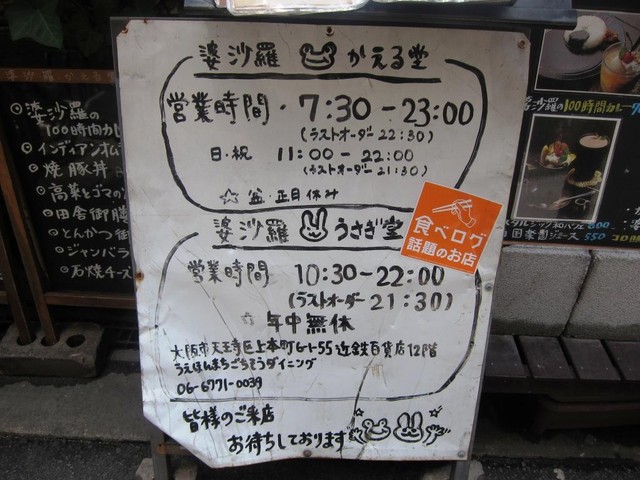 婆沙羅 かえる堂
営業時間・7:30-23:00
(ラストオーダー 22:30)
日・祝 11:00-22:00
(ラストオーダー 21:30)
☆盆・正月休み
婆沙羅 うさぎ堂
食べログ
話題のお店
営業時間 10:30-22:00
(ラストオーダー 21:30)
☆ 年中無休
大阪市天王寺区上本町6-1-55近鉄百貨店12階
うえほんまちごちそうダイニング
06-6771-0039
皆様のご来店
お待ちしております
◎婆沙羅の
100時間カレ
◎インディアンオム
◎焼豚丼
◎高菜とゴマの
◎田舎御膳
◎とんかつ御
◎ジャンバラ
◎石焼チーズ
沙羅の100時間カレー